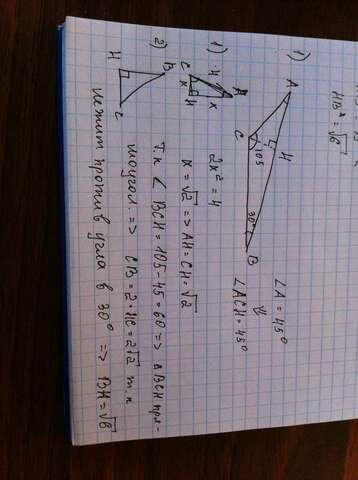 HB² = √6
1)
A
H
C
105
30°
B
∠A = 45°
⇓
∠ACH = 45°
1) 4
C
x
H
x
A
2x² = 4
x = √2 => AH = CH = √2
2)
H
B
C
Т.к ∠ BCH = 105 - 45 = 60 => △ BCH пря-
моугол. => CB = 2 · HC = 2√2 т.к
лежит против угла в 30° => BH = √6